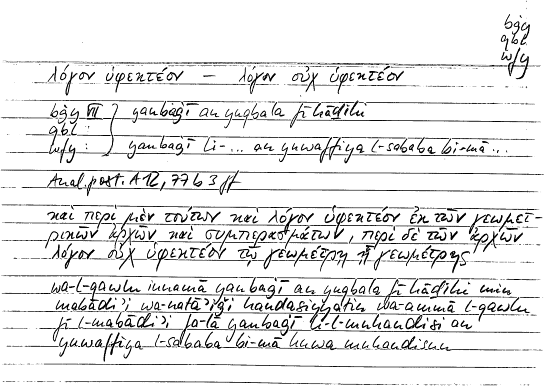 bġy
qbl
wfy
λόγον ὑφεκτέον – λόγον οὐχ ὑφεκτέον
bġy VII } yanbaġī an yuqbala fī hāḏihi
qbl :
wfy : } yanbaġī li-... an yuwaffiya l-sababa bi-mā...
Anal. post. A 12, 77 b 3 ff
καὶ περὶ μὲν τούτων καὶ λόγον ὑφεκτέον ἐκ τῶν γεωμετ-
ρικῶν ἀρχῶν καὶ συμπερασμάτων, περὶ δὲ τῶν ἀρχῶν
λόγον οὐχ ὑφεκτέον τῷ γεωμέτρῃ ᾗ γεωμέτρης
wa-l-qawlu innamā yanbaġī an yuqbala fī hāḏihi min
mabādiʾi wa-natāʾiǧi handasiyyatin wa-ammā l-qawlu
fī l-mabādiʾi fa-lā yanbaġī li-l-muhandisi an
yuwaffiya l-sababa bi-mā huwa muhandisun